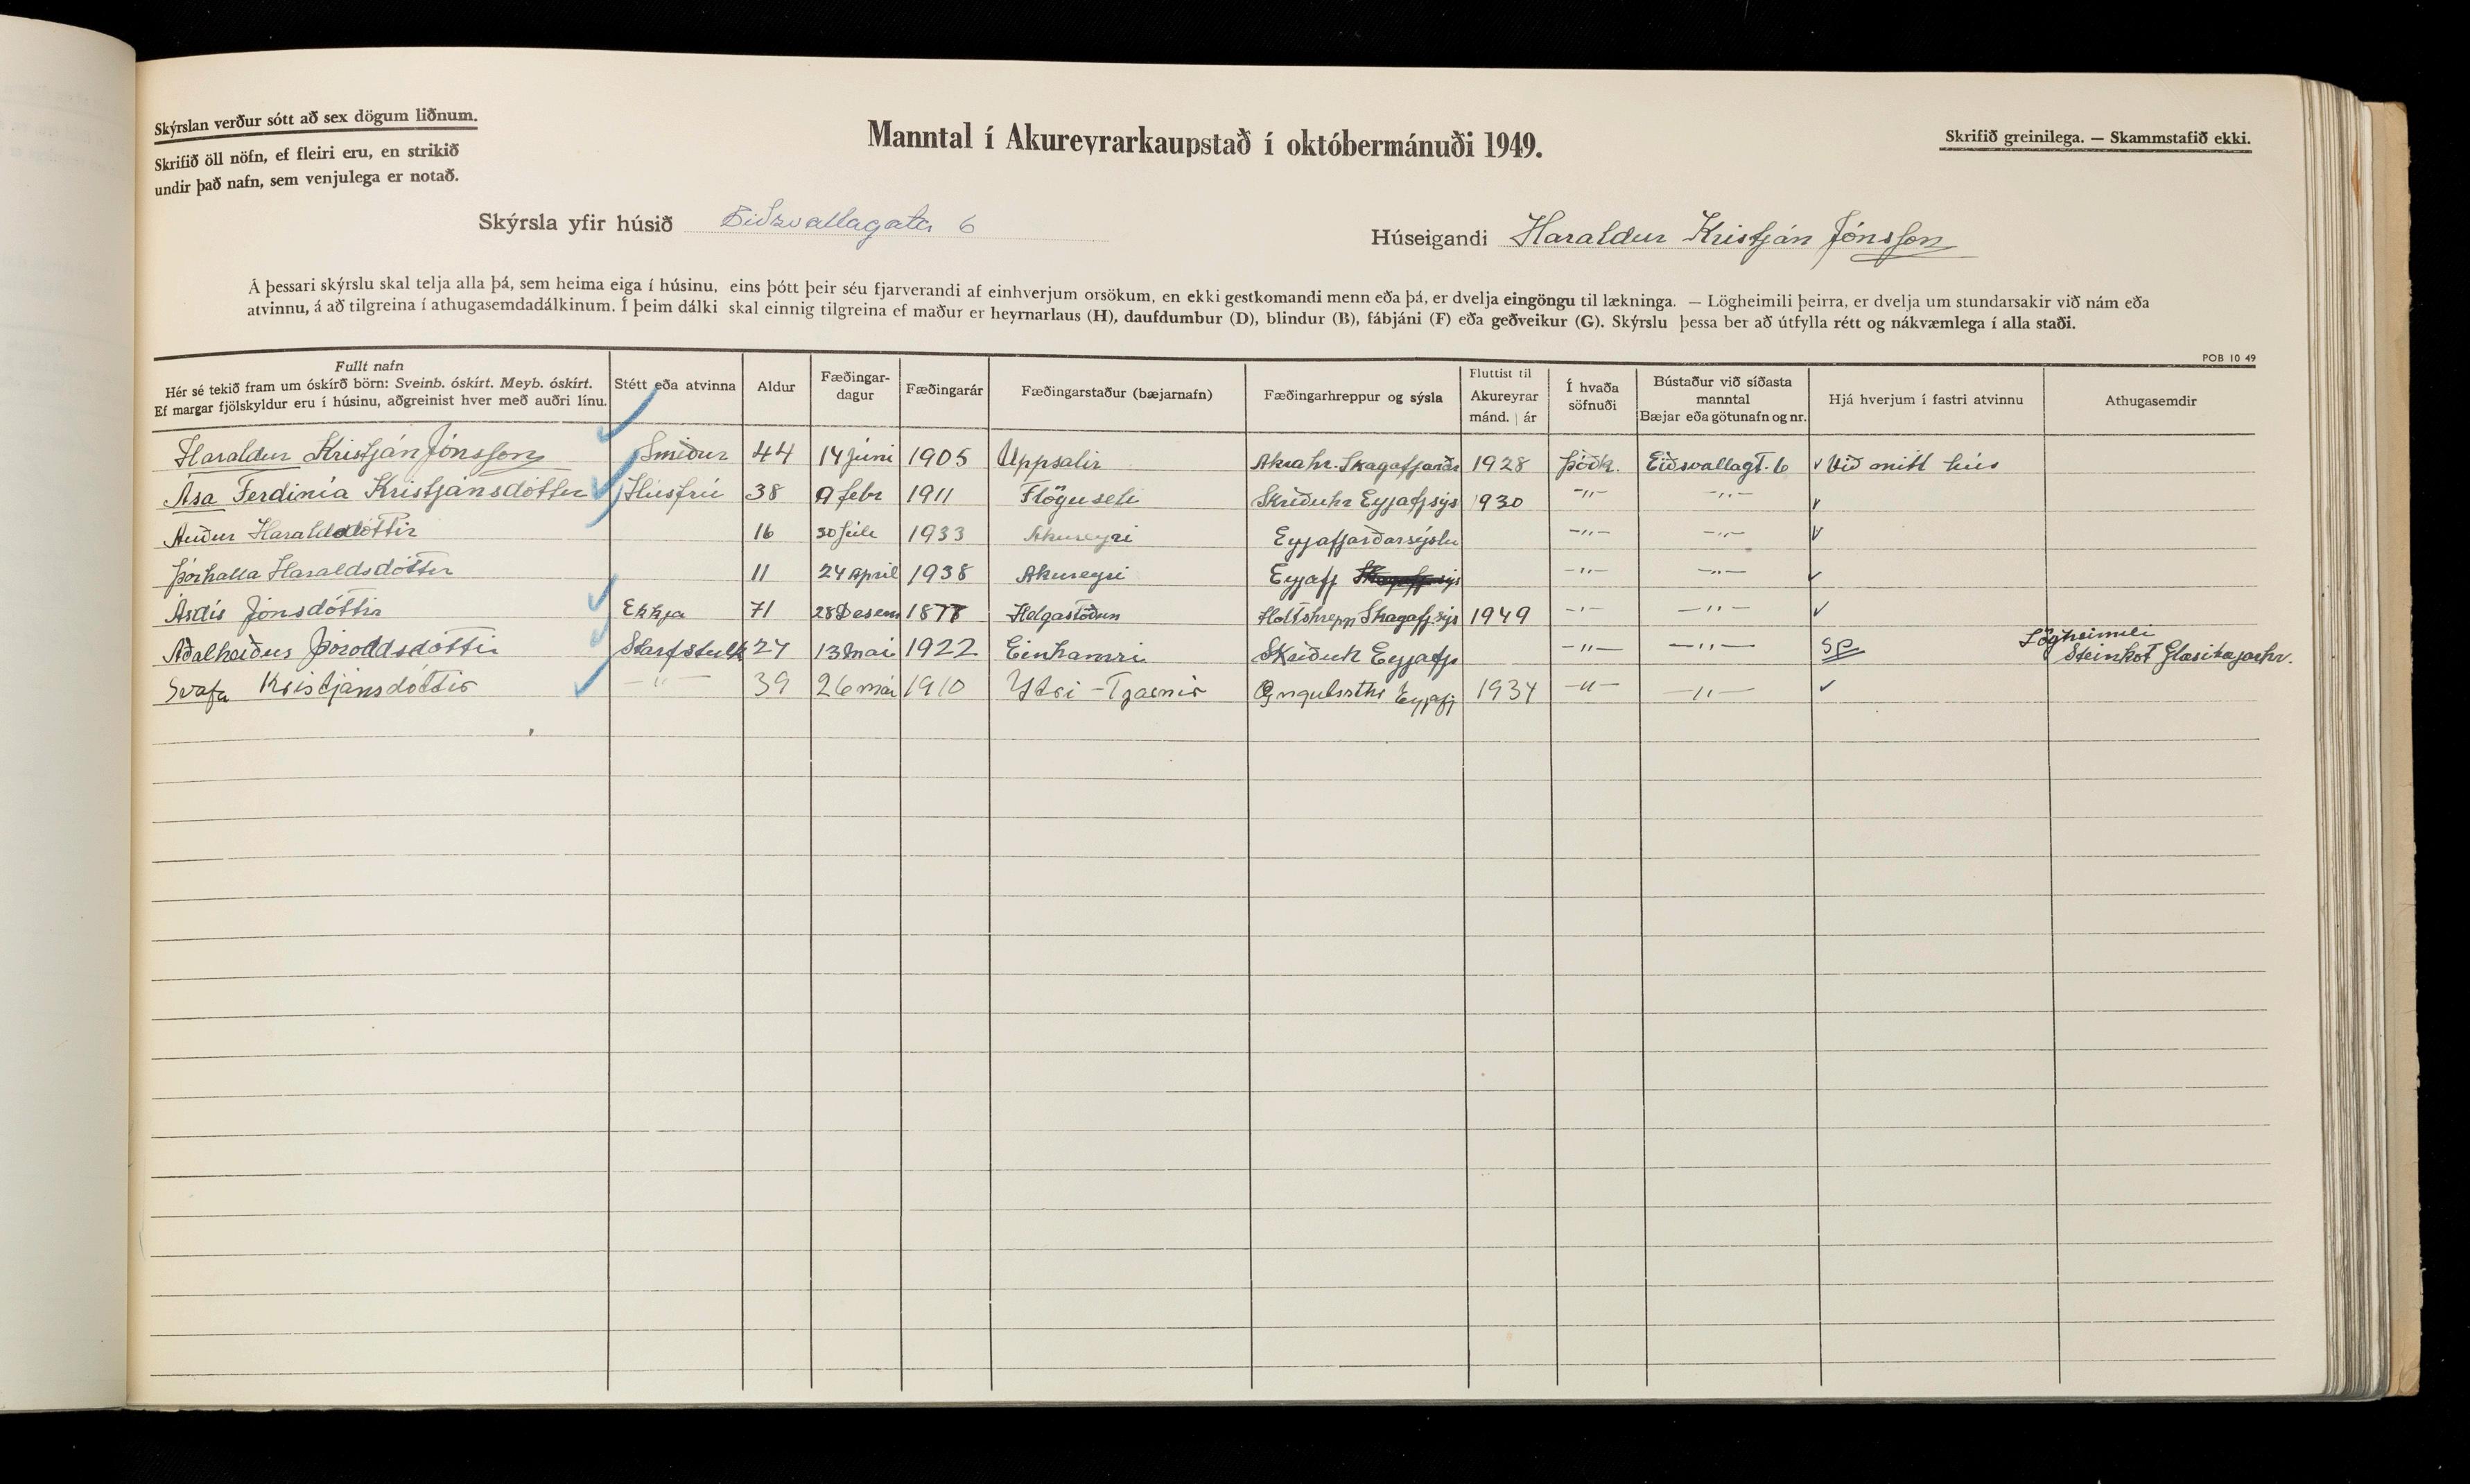 Skýrslan verður sótt að sex dögum liðnum.
Skrifið öll nöfn, ef fleiri eru, en strikið
undir það nafn, sem venjulega er notað.
Manntal í Akureyrarkaupstað í októbermánuði 1949.
Skrifið greinilega. — Skammstafið ekki.
Skýrsla yfir húsið Eiðsvallagata 6
Húseigandi Haraldur Kristján Jónsson
Á þessari skýrslu skal telja alla þá, sem heima eiga í húsinu, eins þótt þeir séu fjarverandi af einhverjum orsökum, en ekki gestkomandi menn eða þá, er dvelja eingöngu til lækninga. — Lögheimili þeirra, er dvelja um stundarsakir við nám eða
atvinnu, á að tilgreina í athugasemdadálkinum. Í þeim dálki skal einnig tilgreina ef maður er heyrnarlaus (H), daufdumbur (D), blindur (B), fábjáni (F) eða geðveikur (G). Skýrslu þessa ber að útfylla rétt og nákvæmlega í alla staði.
POB 10 49
Fullt nafn
Hér sé tekið fram um óskírð börn: Sveinb. óskírt. Meyb. óskírt.
Ef margar fjölskyldur eru í húsinu, aðgreinist hver með auðri línu.
Stétt eða atvinna
Aldur
Fæðingar-
dagur
Fæðingarár
Fæðingarstaður (bæjarnafn)
Fæðingarhreppur og sýsla
Fluttist til
Akureyrar
mánd. | ár
Í hvaða
söfnuði
Bústaður við síðasta
manntal
Bæjar eða götunafn og nr.
Hjá hverjum í fastri atvinnu
Athugasemdir
Haraldur Kristján Jónsson Smiður 44 14 júni 1905 Uppsalir Akrahr. Skagafjarðr 1928 Þjóðk. Eiðsvallagt. 6 Við mitt hús
Ása Ferdinía Kristjánsdóttir Húsfrú 38 9 febr 1911 Flöguseli Skriðuhr Eyjafjsýs 1930 -"- -"-
Auður Haraldsdóttir 16 30 júlí 1933 Akureyri Eyjafjarðarsýslu -"- -"-
Þórhalla Haraldsdóttir 11 24 apríl 1938 Akureyri Eyjafj sýs -"- -"-
Ásdís Jónsdóttir Ekkja 71 28 Desem 1878 Helgastöðum Holtshrepp Skagafj.sýs 1949 -"- -"-
Aðalheiður Þóroddsdóttir Starfstulk 27 13 mai 1922 Einhamri Skriðuh Eyjafjs -"- -"- SP Lögheimili
Steinkot Glæsibæjarhr.
Svafa Kristjánsdóttir -"- 39 26 maí 1910 Ytri-Tjarnir Öngulssthr Eyjafj 1934 -"- -"-